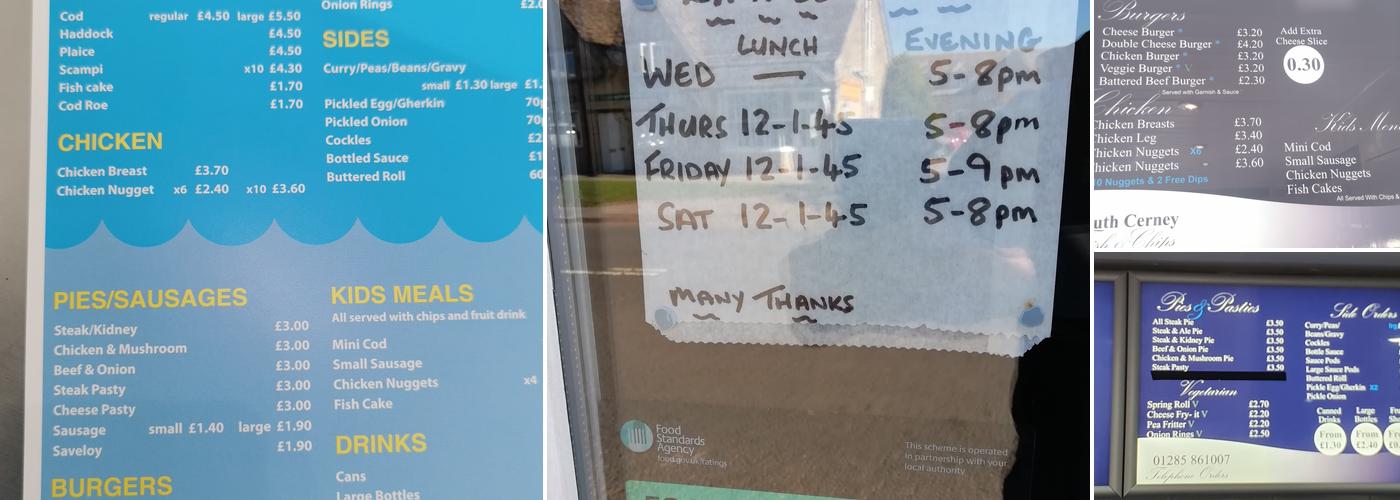 Cod regular £4.50 large £5.50
Haddock £4.50
Plaice £4.50
Scampi x10 £4.30
Fish cake £1.70
Cod Roe £1.70
CHICKEN
Chicken Breast £3.70
Chicken Nugget x6 £2.40 x10 £3.60
Onion Rings £2.0
SIDES
Curry/Peas/Beans/Gravy
small £1.30 large £1.
Pickled Egg/Gherkin 70p
Pickled Onion 70
Cockles £2
Bottled Sauce £1
Buttered Roll 60
PIES/SAUSAGES
Steak/Kidney £3.00
Chicken & Mushroom £3.00
Beef & Onion £3.00
Steak Pasty £3.00
Cheese Pasty £3.00
Sausage small £1.40 large £1.90
Saveloy £1.90
BURGERS
KIDS MEALS
All served with chips and fruit drink
Mini Cod
Small Sausage
Chicken Nuggets x4
Fish Cake
DRINKS
Cans
Large Bottles
LUNCH EVENING
WED 5-8pm
THURS 12-1-45 5-8pm
FRIDAY 12-1-45 5-9pm
SAT 12-1-45 5-8pm
MANY THANKS
Food
Standards
Agency
food.gov.uk/ratings
This scheme is operated
in partnership with your
local authority
Burgers
Cheese Burger £3.20
Double Cheese Burger £4.20
Chicken Burger £3.20
Veggie Burger V £3.20
Battered Beef Burger £2.30
Served with Garnish & Sauce
Add Extra
Cheese Slice
0.30
Chicken
Chicken Breasts £3.70
Chicken Leg £3.40
Chicken Nuggets X6 £2.40
Chicken Nuggets £3.60
10 Nuggets & 2 Free Dips
Kids Men
Mini Cod
Small Sausage
Chicken Nuggets
Fish Cakes
All Served With Chips &
uth Cerney
sh & Chips
Pies & Pasties
All Steak Pie £3.50
Steak & Ale Pie £3.50
Steak & Kidney Pie £3.50
Beef & Onion Pie £3.50
Chicken & Mushroom Pie £3.50
Steak Pasty £3.50
Vegetarian
Spring Roll V £2.70
Cheese Fry-it V £2.20
Pea Fritter V £2.20
Onion Rings V £2.50
Side Orders
Curry/Peas/
Beans/Gravy
Cockles
Bottle Sauce
Sauce Pods
Large Sauce Pods
Buttered Roll
Pickle Egg/Gherkin X2
Pickle Onion
Canned
Drinks
From
£1.30
Large
Bottles
From
£2.40
01285 861007
Telephone Orders